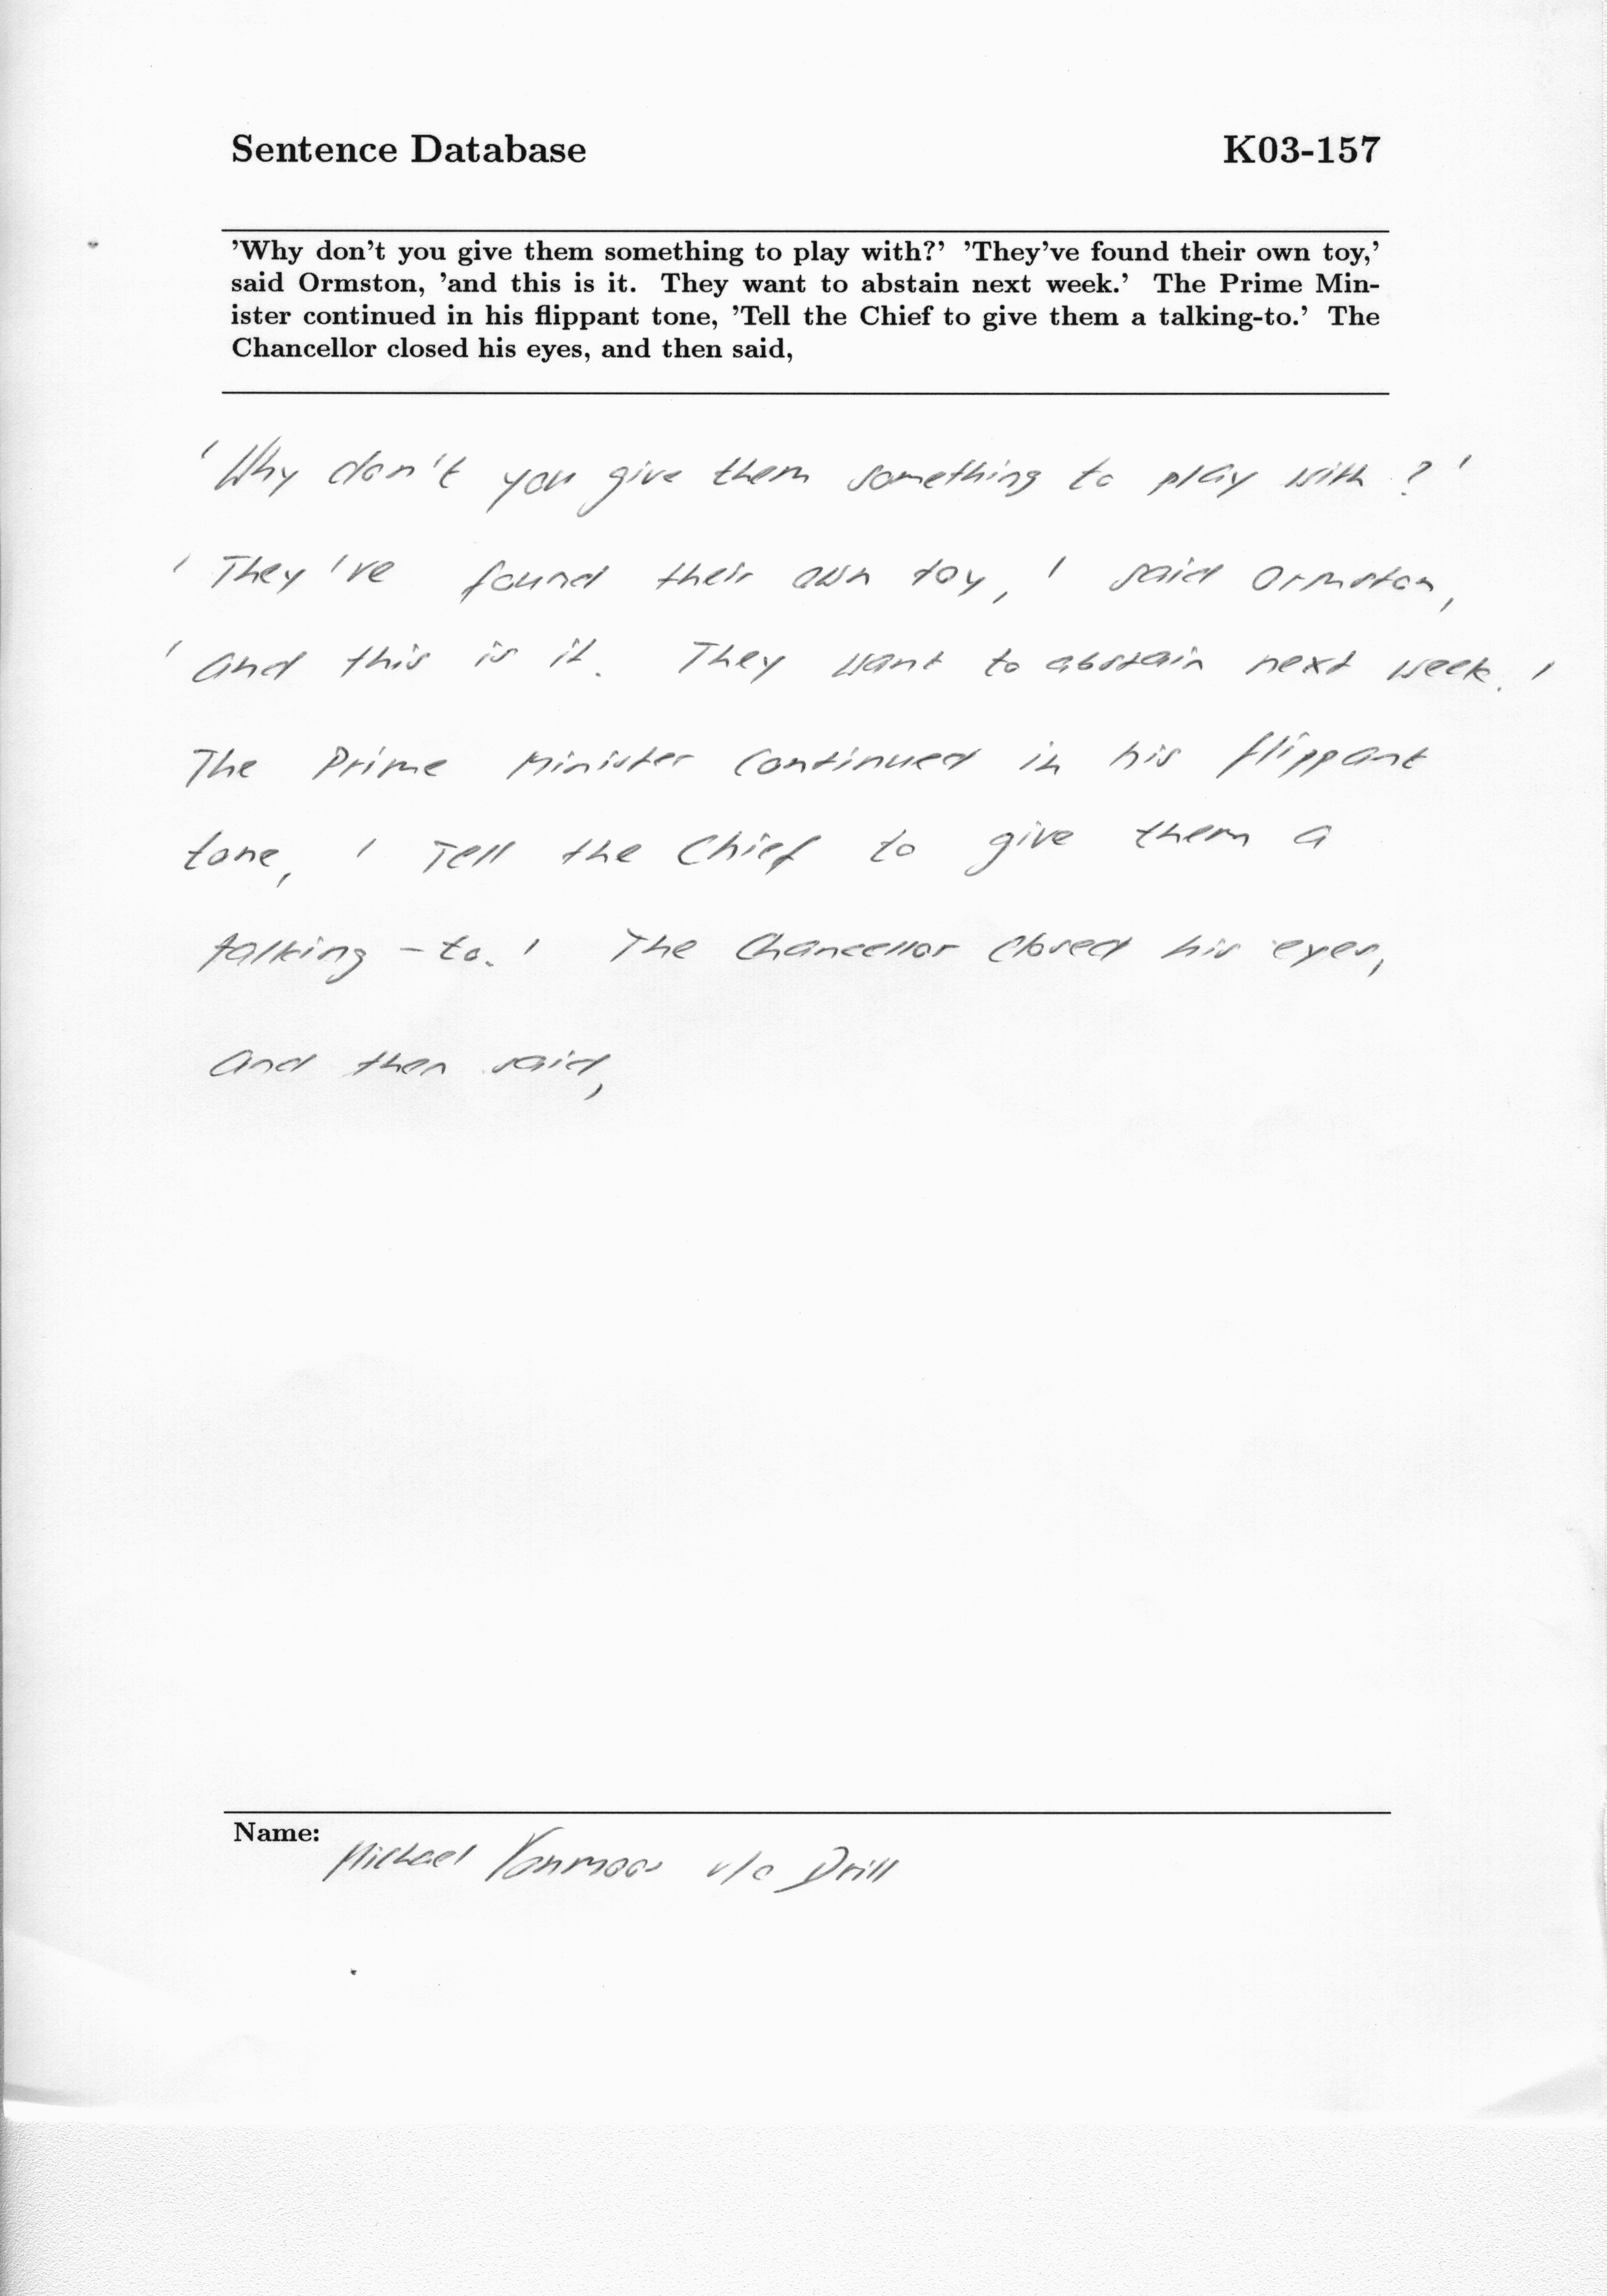 Sentence Database K03-157
'Why don't you give them something to play with?' 'They've found their own toy,'
said Ormston, 'and this is it. They want to abstain next week.' The Prime Min-
ister continued in his flippant tone, 'Tell the Chief to give them a talking-to.' The
Chancellor closed his eyes, and then said,
'Why don't you give them something to play with?'
'They've found their own toy,' said Ormston,
'and this is it. They want to abstain next week.'
The Prime Minister continued in his flippant
tone, 'Tell the Chief to give them a
talking-to.' The Chancellor closed his eyes,
and then said,
Name: Michael v/o Drill